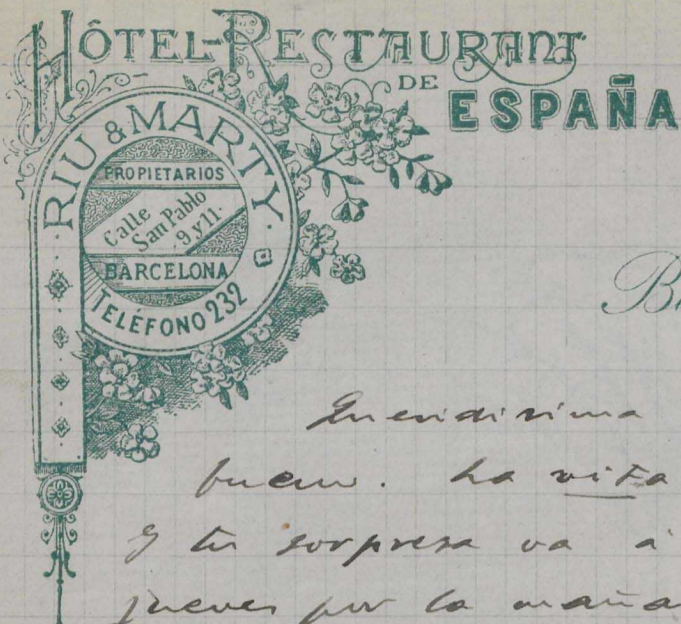 HÔTEL-RESTAURANT
DE
ESPAÑA
RIU & MARTY.
PROPIETARIOS
Calle
San Pablo
9 y 11.
BARCELONA
TELÉFONO 232
Queridisima
buena. La vista
y tu sorpresa va á
jueves por la maña